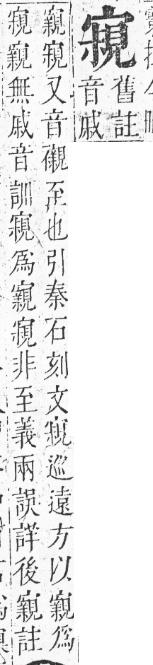 舊註
音戚
寴又音櫬至也引秦石刻文巡遠方以寴爲
寴無戚音訓爲寴非至義兩誤詳後寴註